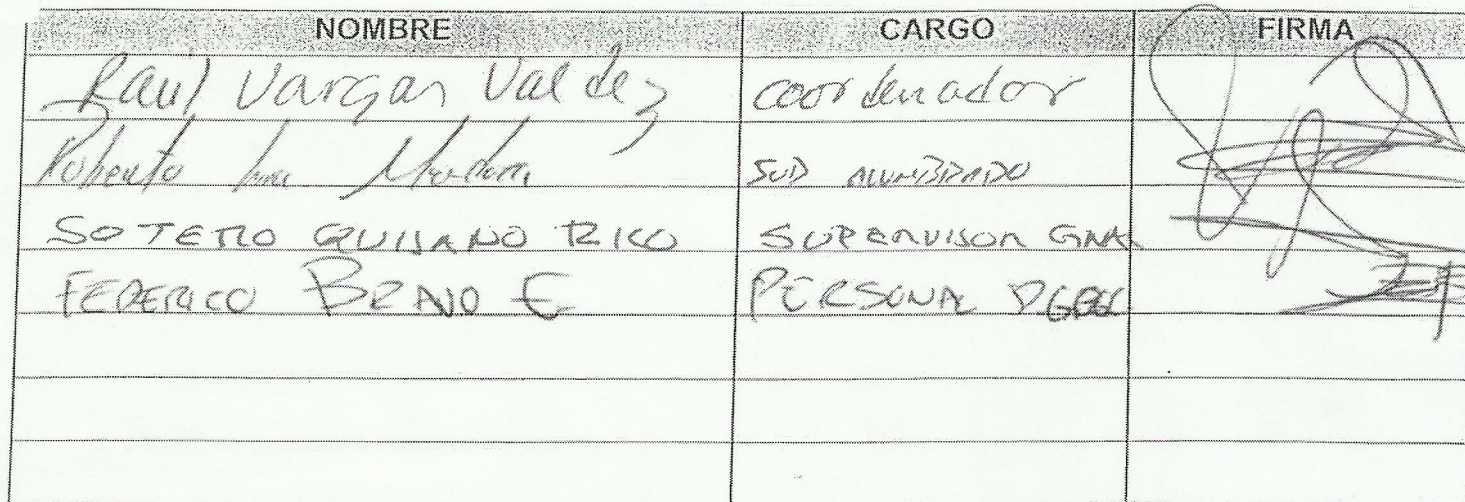 NOMBRE CARGO FIRMA
Raul Vargas Valdez coordenador
Roberto SUD ALUMBRADO
SOTERO QUIJANO RICO SUPERVISOR GNAL
FEDERICO BRAVO E. PERSONAL